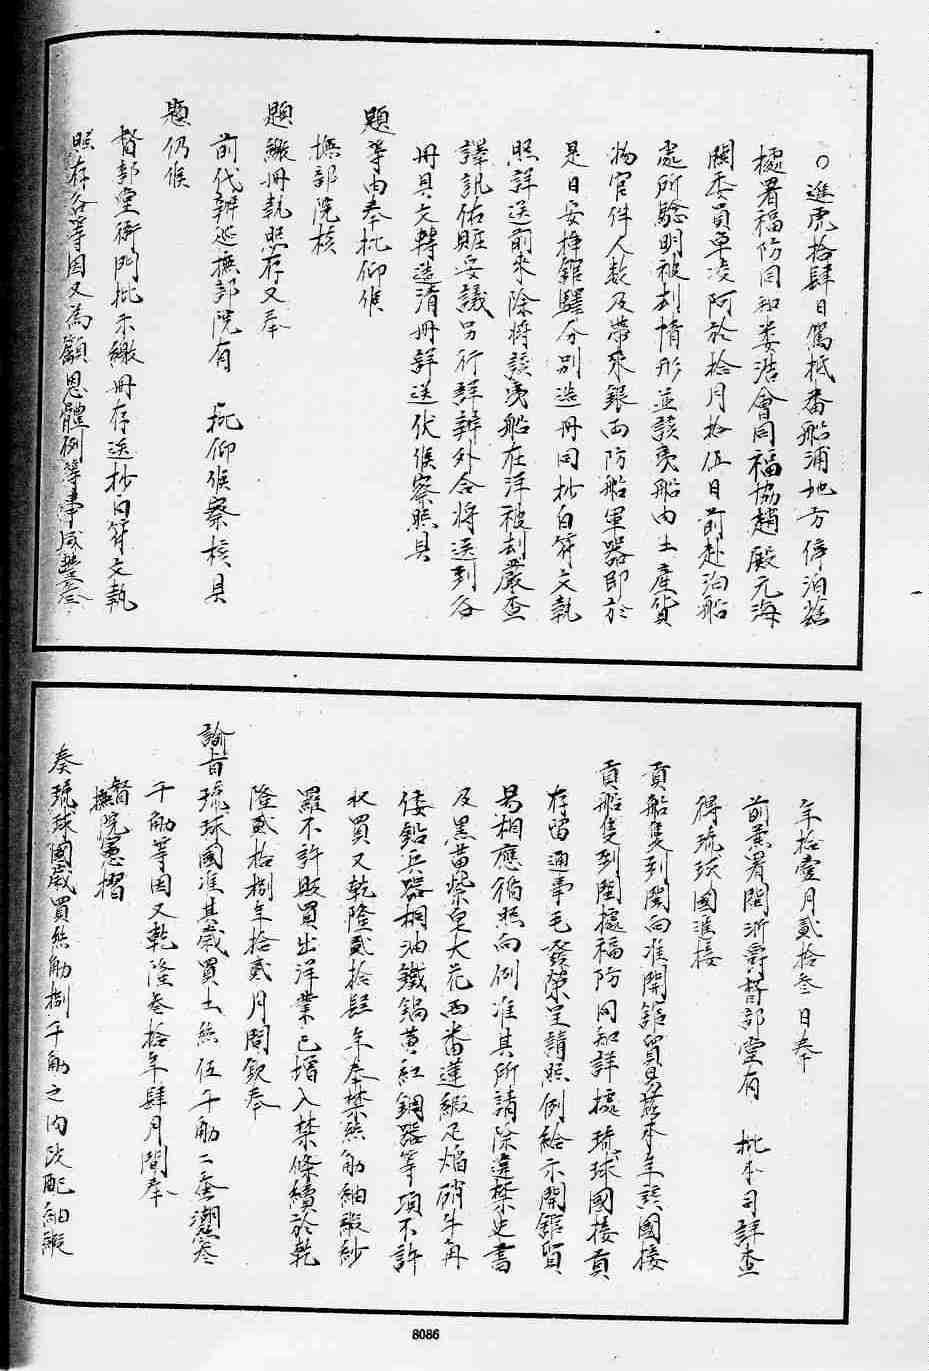 ○進虎拾肆日駕抵番船浦地方停泊茲
據署福防同知婁浩會同福協趙殿元海
關委員卓凌阿於拾月拾伍日前赴泊船
處所驗明被刦情形並該夷船內土產貨
物官伴人數及帶來銀兩防船軍器即於
是日安揷館驛分別造冊同抄白符文執
照詳送前來除將該夷船在洋被刦嚴查
譯訊估賍妥議另行詳辦外合將送到各
冊具文轉造清冊詳送伏候察照具
題等由奉批仰候
撫部院核
題繳冊執照存又奉
前代辦巡撫部院有 批仰候察核具
題仍候
督部堂衙門批示繳冊存送抄白符文執
照存各等因又為籲恩體例等事咸豐叁
年拾壹月貳拾叁日奉
前兼署閩浙爵督部堂有 批本司詳查
得琉球國進接
貢船隻到閩向准開館貿易茲本年該國接
貢船隻到閩據福防同知詳據琉球國接貢
存留通事毛發榮呈請照例給示開館貿
易相應循照向例准其所請除違禁史書
及黑黃紫皂大花西番蓮緞疋焰硝牛角
倭鉛兵器桐油鐵鍋黃紅銅器等項不許
收買又乾隆貳拾肆年奉禁絲觔紬緞紗
羅不許販買出洋業已增入禁條續於乾
隆貳拾捌年拾貳月間欽奉
諭旨琉球國准其歲買土絲伍千觔二蠶湖絲叁
千觔等因又乾隆叁拾年肆月間奉
督撫院憲摺
奏琉球國歲買絲觔捌千觔之內改配紬緞
8086